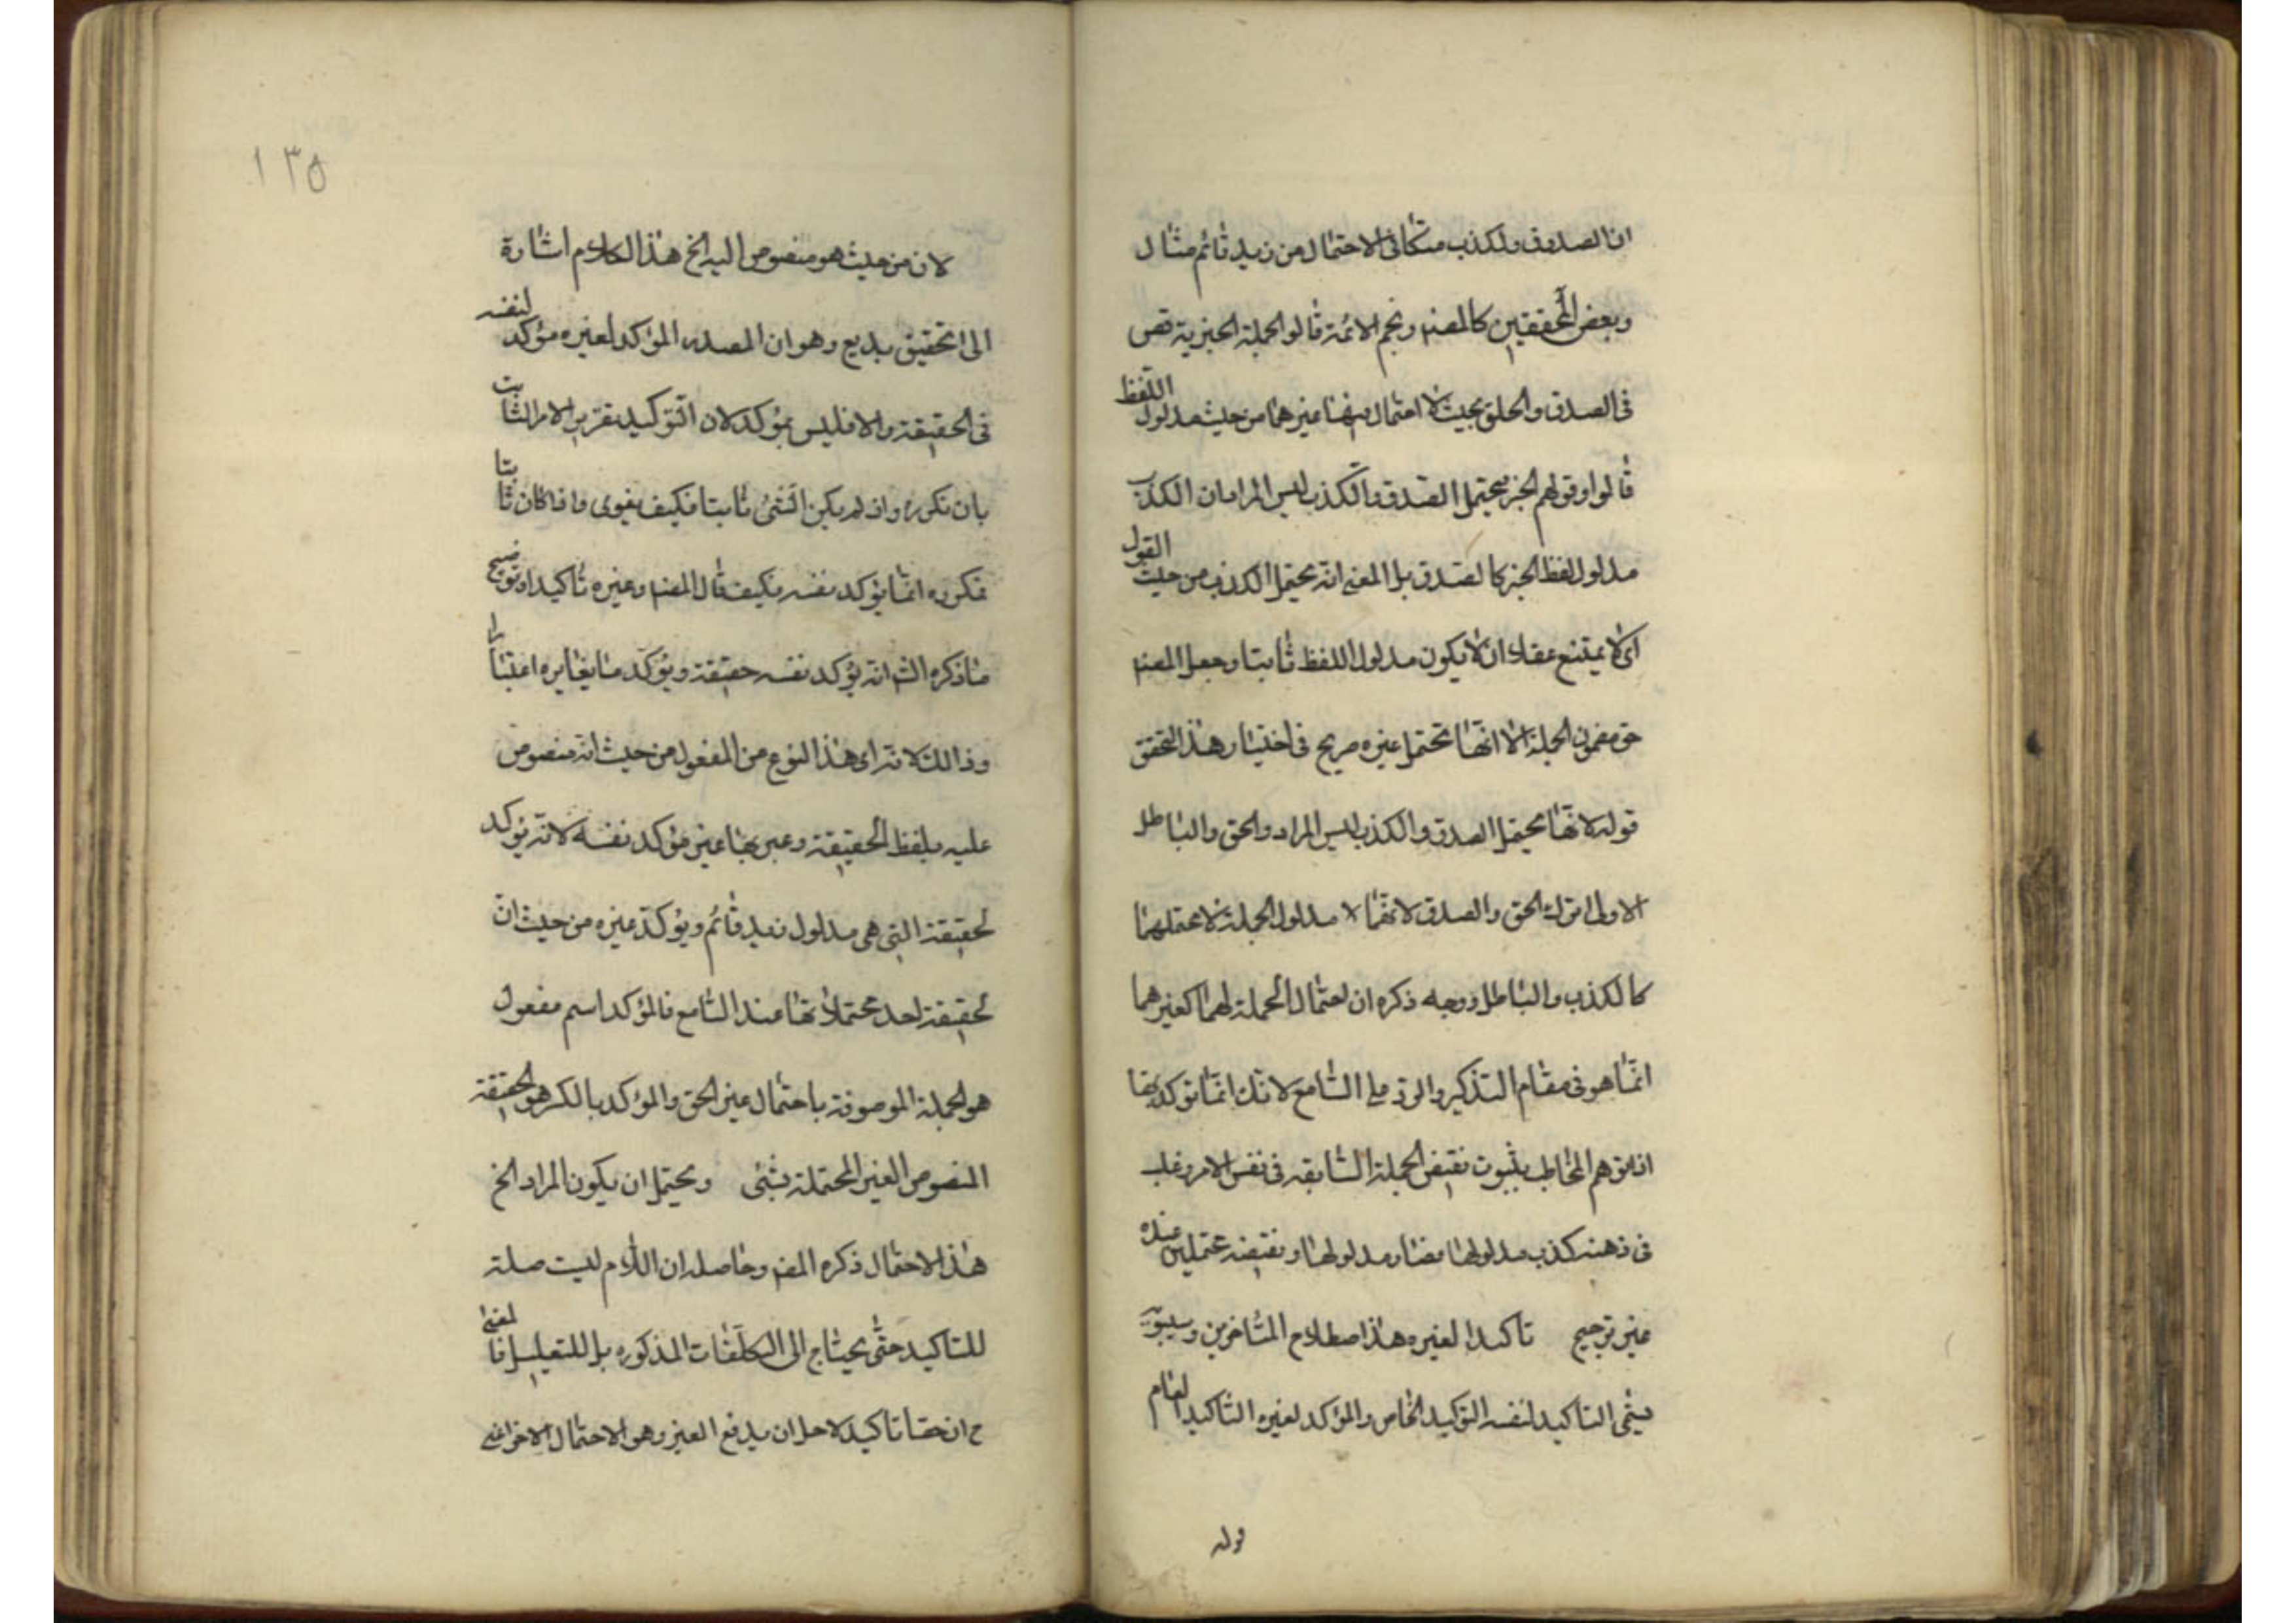 ان الصدوق والكذب متكافى الاحتمال من زيد قائم مثال
وبعض المحققين كالمصنم ونجم الائمة قالوا الجملة الخبرية نص
فى الصدق والحق بحيث لا احتمال فيها غيرهما من حيث مدلول اللفظ
قالوا وقولهم الخبر يحتمل الصدق والكذب ليس المراد ان الكذب
مدلول لفظ الخبر كالصدق بل المعنى انه يحتمل الكذب من حيث القول
اى لا يمتنع عقلا ان لا يكون مدلول اللفظ ثابتا وجعل المصنم
حق مضمون الجملة الا انها تحتمل غيره صريح فى اختيار هذا التحقق
قوله لانها يحتمل الصدق والكذب ليس المراد والحق والباطل
الاولى ترك الحق والصدق لانهما لا مدلول الجملة لا محتملهما
كالكذب والباطل ووجه ذكره ان احتمال الجملة لهما كغيرهما
انما هو فى مقام التذكير والرد على السامع لانك انما توكد بها
اذا توهم المخاطب بثبوت نقيض الجملة السابقة فى نفس الامر وغلب
فى ذهنه كذب مدلولها فصار مدلولها ونقيضه محتملين عنده
غير ترجيح تاكيدا لغيره هذا اصطلاح المتاخرين وسيبويه
يسمى التاكيد لنفسه التوكيد الخاص والمؤكد لغيره التاكيد العام
قوله
١٣٥
لان من حيث هو منصوص اليه الخ هذا الكلام اشارة
الى تحقيق بديع وهو ان المصدر المؤكد لغيره مؤكد لنفسه
فى الحقيقة والا فليس بمؤكد لان التوكيد تقرير الامر الثابت
بان تكوره واذ لم يكن الشئ ثابتا فكيف يقوى واذا كان ثابتا
فكوره انما يؤكد نفسه فكيف قال المصنم وغيره تاكيدا وتوضيح
ما ذكره الش انه يؤكد نفسه حقيقة ويؤكد ما يغايره اعتبارا
وذالك لانه اى هذا النوع من المفعول من حيث انه منصوص
عليه بلفظ الحقيقة وعبر بها عن مؤكد نفسه لانه يؤكد
لحقيقة التى هى مدلول زيد قائم ويؤكد غيره من حيث ان
لحقيقة احد محتملاتها عند السامع فالمؤكد اسم مفعول
هو الجملة الموصوفة باحتمال غير الحق والمؤكد بالكسر هو الحقيقة
المنصوص الغير المحتملة بشئى ويحتمل ان يكون المراد الخ
هذا الاحتمال ذكره المصنم وحاصله ان اللام ليست صلة
للتاكيد حتى يحتاج الى التكلفات المذكوره بل للتعليل فالمعنى
ح ان حقا تاكيد لاجل ان يدفع الغير وهو الاحتمال الاخر اعنى